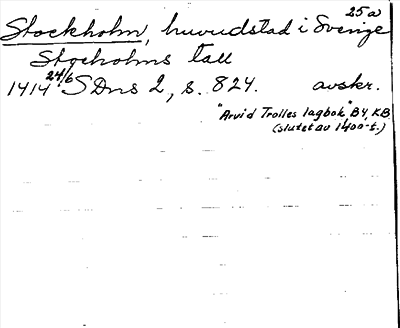 25a
Stockholm, huvudstad i Sverige
Stocholms
1414 24/6 SDns 2, s. 824. avskr.
"Arvid Trolles lagbok" B4, KB
(slutet av 1400-t.)